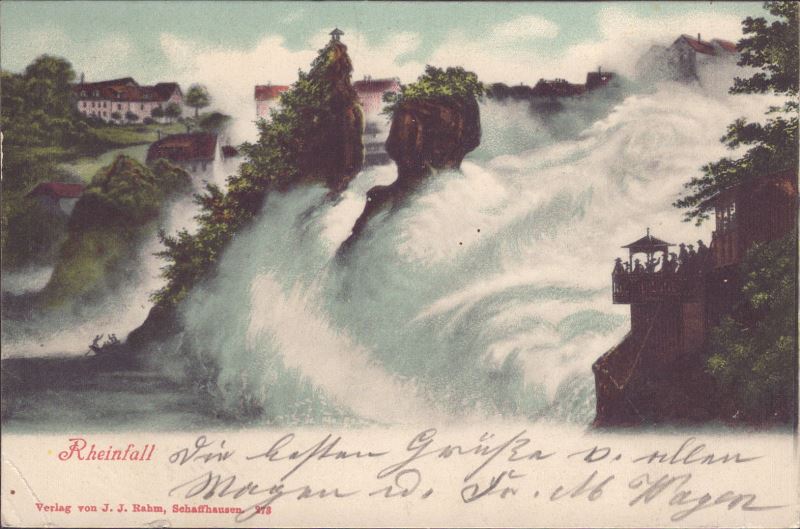 Rheinfall
Die besten Grüße v. allen
Wagen u. Fr. M Wagen
Verlag von J. J. Rahm, Schaffhausen. 273